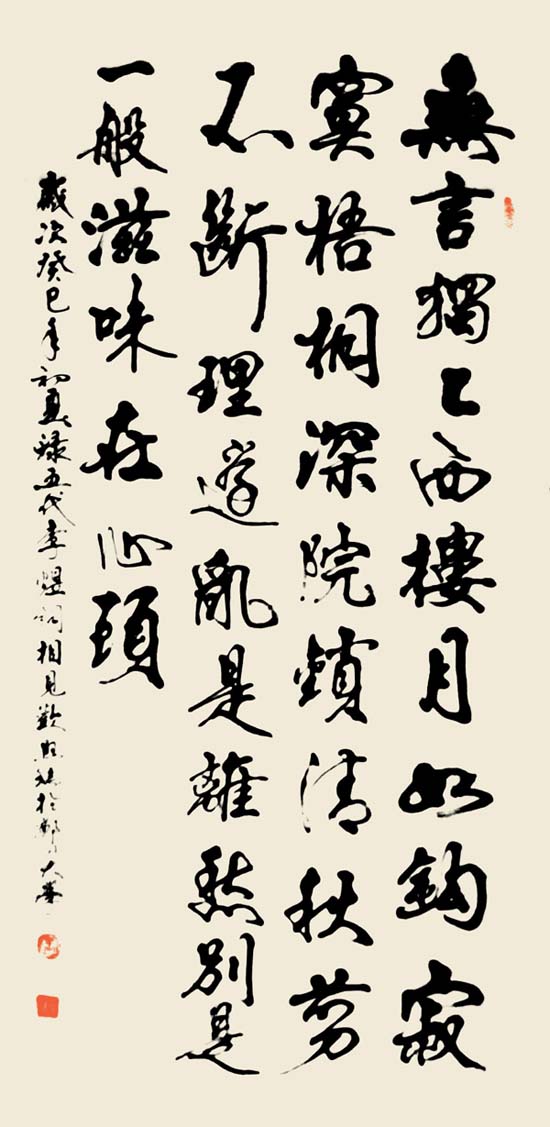 無言獨上西樓月如鈎寂
寞梧桐深院鎖清秋剪
不斷理還亂是離愁別是
一般滋味在心頭
歲次癸巳年初夏録五代李煜詞相見歡於鄭大